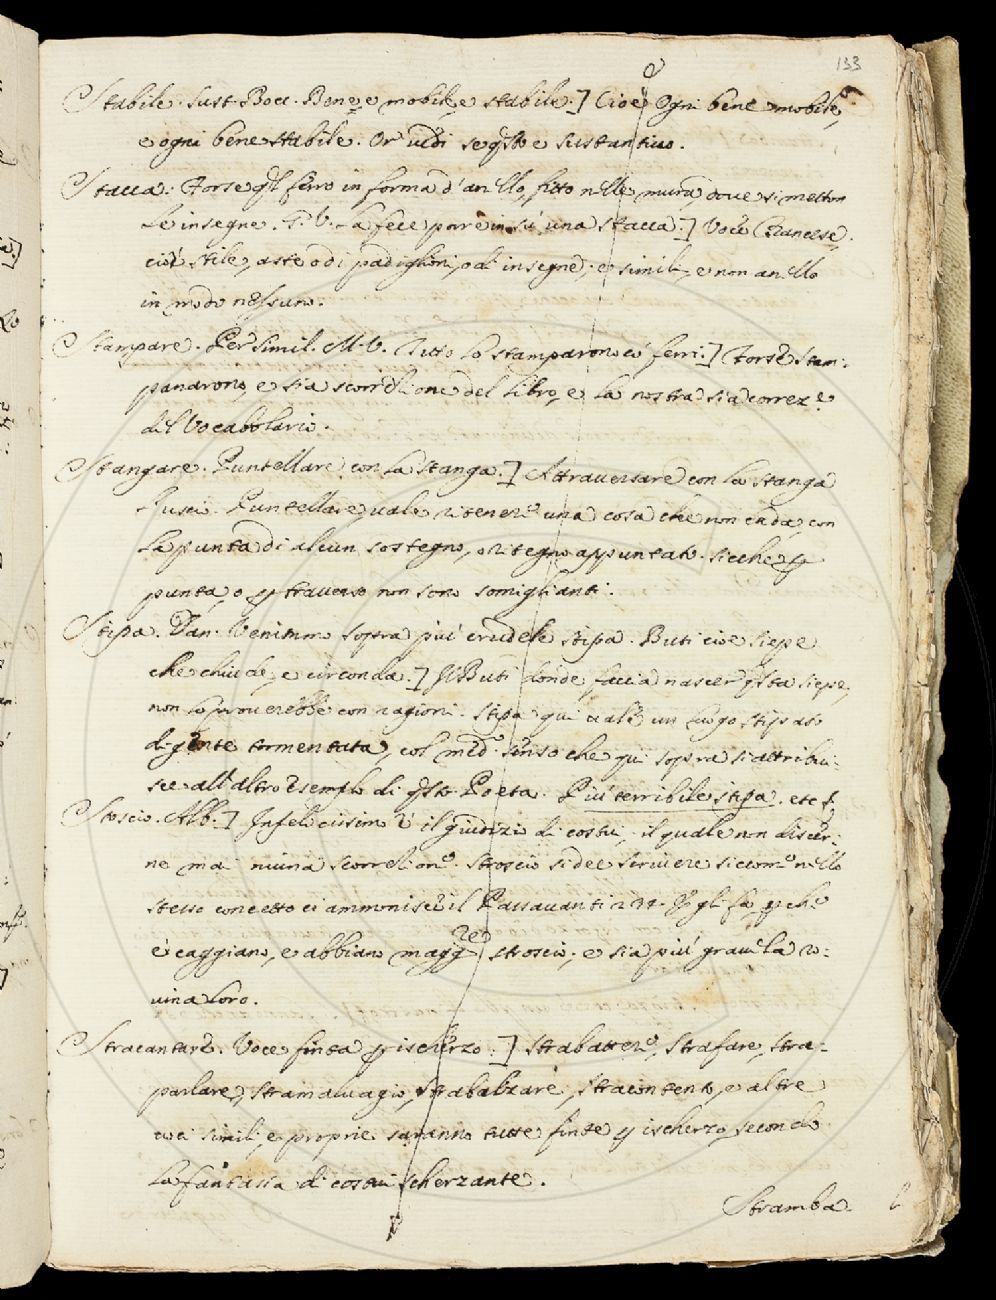 133
Stabile. Sust. Bocc. Bene, e mobile, e stabile.] Cioè Ogni bene mobile,
e ogni bene stabile. Or vedi se qsto e sustantivo.
Stacca. Forse ql ferro in forma d'anello, fitto nelle mura, dove si metton
le insegne. G. V. La fece porre in sù una stacca.] Voce Francese,
cioè stile, aste o di padiglioni, o di insegne, e simili, e non anello
in modo nessuno.
Stampare. Per simil. M. V. Tutto lo stamparono co' ferri.] Forse stam-
panarono, e sia scorrezione del libro, e la nostra sia correze.
del Vocabolario.
Stangare. Puntellare con la stanga.] Attraversare con la stanga
l'uscio. Puntellare, vale ritenere una cosa che non cada, con
la punta di alcun sostegno, o ritegno appuntato. sicche p
punta, o p traverso non sono somiglianti.
Stipa. Dan. Venimmo sopra piu crudele stipa. Buti cioè siepe
che chiude, e circonda.] Il Buti donde faccia nascer qsta siepe,
non lo proverebbe con ragioni. Stipa qui vale un luogo stipato
di gente tormentata, col med. senso che qui sopra si attribui-
sce all'altro esemplo di qsto Poeta. Più terribile stipa. etc.
Stoscio. Alb.] Infelicissimo è il giudizio di costui, il quale non discer-
ne mai niuna scorrezione. Stroscio si dee scrivere siccome nello
stesso concetto ci ammonisce il Passavanti 237. Egli fa, pche
e' caggiano, e abbiano maggre stroscio; e sia più grave la ro-
vina loro.
Stracantare. Voce finta p ischerzo.] Strabattere, Strafare, stra-
parlare, stramalvagio, strabalzare, stracontento, e altre
voci simili, e proprie saranno tutte finte p ischerzo, secondo
la fantasia di costui scherzante.
Stramba.